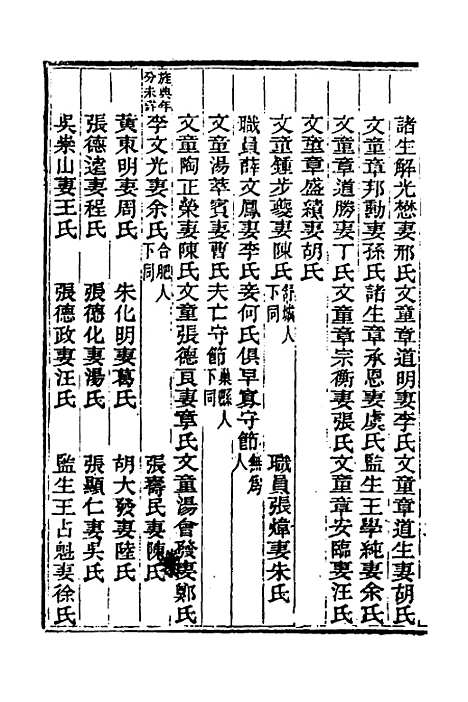 諸生解光懋妻邢氏文童章道明妻李氏文童章道生妻胡氏
文童章邦勛妻孫氏諸生章承恩妻虞氏監生王學純妻余氏
文童章道勝妻丁氏文童章宗衡妻張氏文童章安臨妻汪氏
文童章盛績妻胡氏
文童鍾步夔妻陳氏舒城人下同 職員張煒妻朱氏
職員薛文鳳妻李氏妾何氏俱早寡守節無為人
文童湯萃賓妻曹氏夫亡守節巢縣人下同
文童陶正榮妻陳氏文童張德良妻章氏文童湯會發妻鄭氏
旌典年分未詳
李文光妻余氏合肥人下同 張壽民妻陳氏
黃東明妻周氏 朱化明妻葛氏 胡大發妻陸氏
張德達妻程氏 張德化妻湯氏 張顯仁妻吳氏
吳崇山妻王氏 張德政妻汪氏 監生王占魁妻徐氏